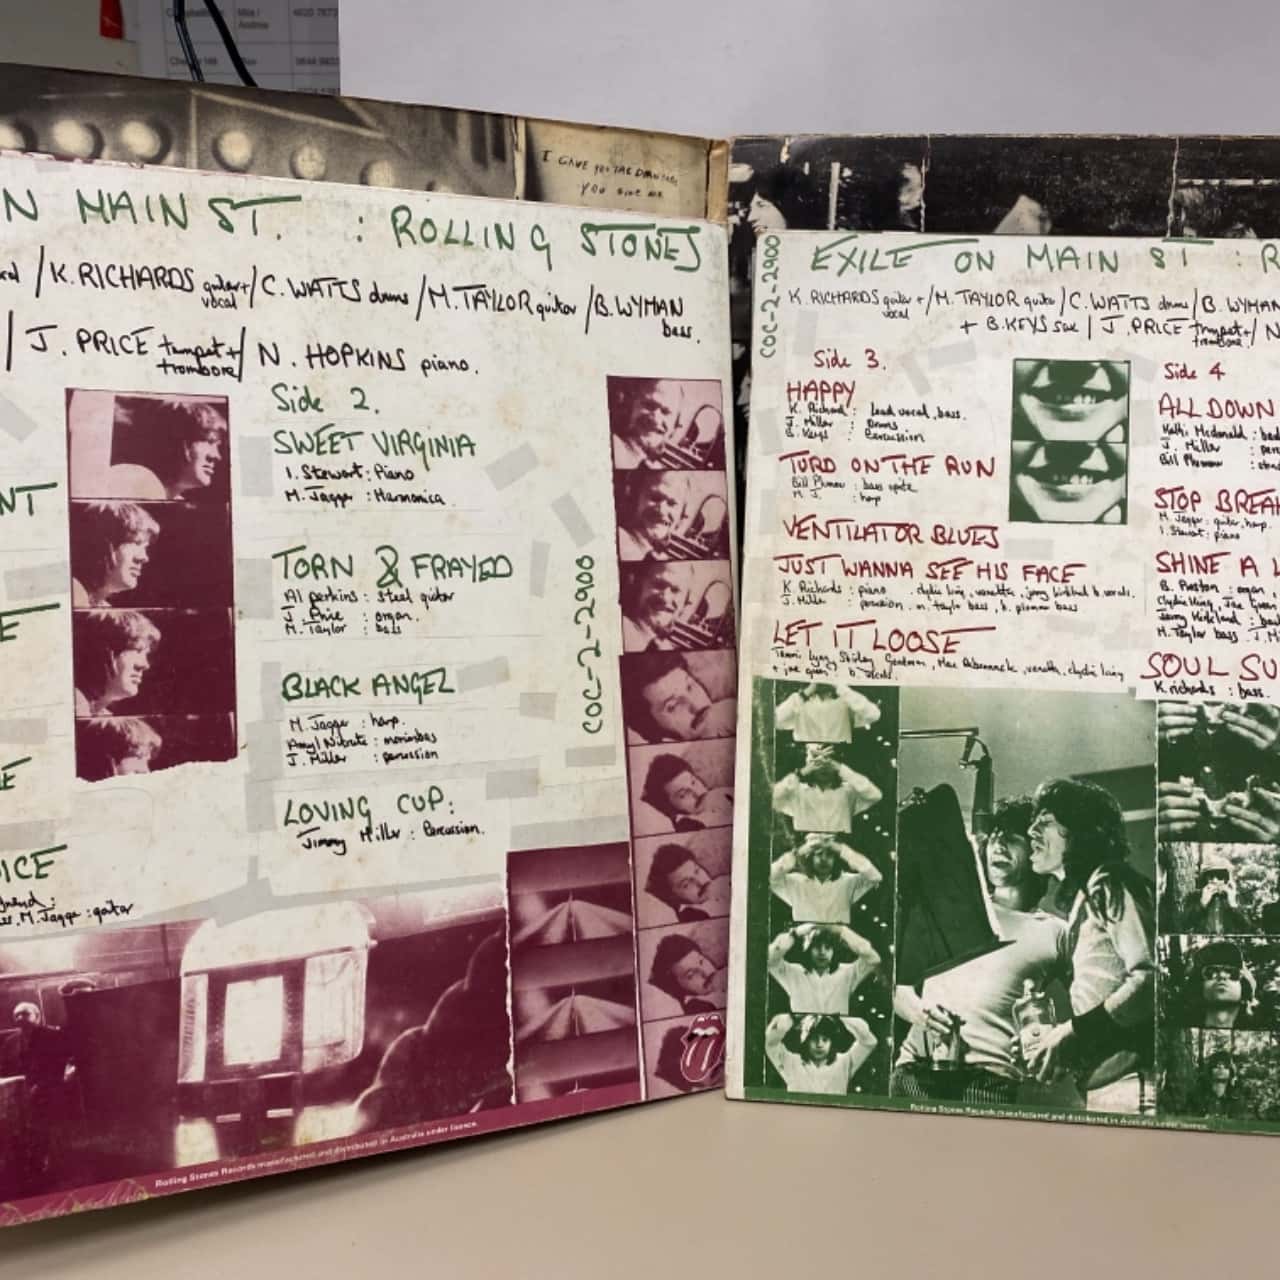 Mila /
Andrew
I GAVE YOU THE DIAMONDS
YOU GIVE ME
N MAIN ST. : ROLLING STONES
/K. RICHARDS guitar + vocal /C. WATTS drums /M. TAYLOR guitar /B. WYMAN bass.
/ J. PRICE trumpet + trombone / N. HOPKINS piano.
NT
E
E
ICE
M. Jagger : guitar
Side 2.
SWEET VIRGINIA
I. Stewart : Piano
M. Jagger : Harmonica.
TORN & FRAYED
Al perkins : Steel guitar
J. Price : organ.
M. Taylor : bass
BLACK ANGEL
M. Jagger : harp.
Amyl Nitrate : marimbas
J. Miller : percussion
LOVING CUP:
Jimmy Miller : Percussion.
COC-2-2900
Rolling Stones Records manufactured and distributed in Australia under licence.
COC-2-2900
EXILE ON MAIN ST : R
K. RICHARDS guitar + vocal /M. TAYLOR guitar /C. WATTS drums /B. WYMAN
+ B. KEYS sax / J. PRICE trumpet + trombone. / N
Side 3.
HAPPY
K. Richard : lead vocal, bass.
J. Miller : Drums
B. Keys : Percussion
TURD ON THE RUN
Bill Plummer : bass
M. J. : harp
VENTILATOR BLUES
JUST WANNA SEE HIS FACE
K. Richards : piano . clydie king, vanetta, jerry kirkland b. vocals.
J. Miller : percussion. m. taylor bass, b. plummer bass
LET IT LOOSE
Tammi Lynn, Shirley Goodman, Mac Rebennack, vanetta, clydie king
+ joe green : b. vocals.
Side 4
ALL DOWN
Kathi McDonald : back
J. Miller : perc
Bill Plummer :
STOP BREA
M. Jagger : guitar, harp.
I. Stewart : piano
SHINE A L
B. Preston : organ,
Clydie King, Joe Green
Jerry Kirkland : bac
M. Taylor bass . J. M
SOUL SU
K. richards : bass.
Rolling Stones Records manufactured and distributed in Australia under licence.